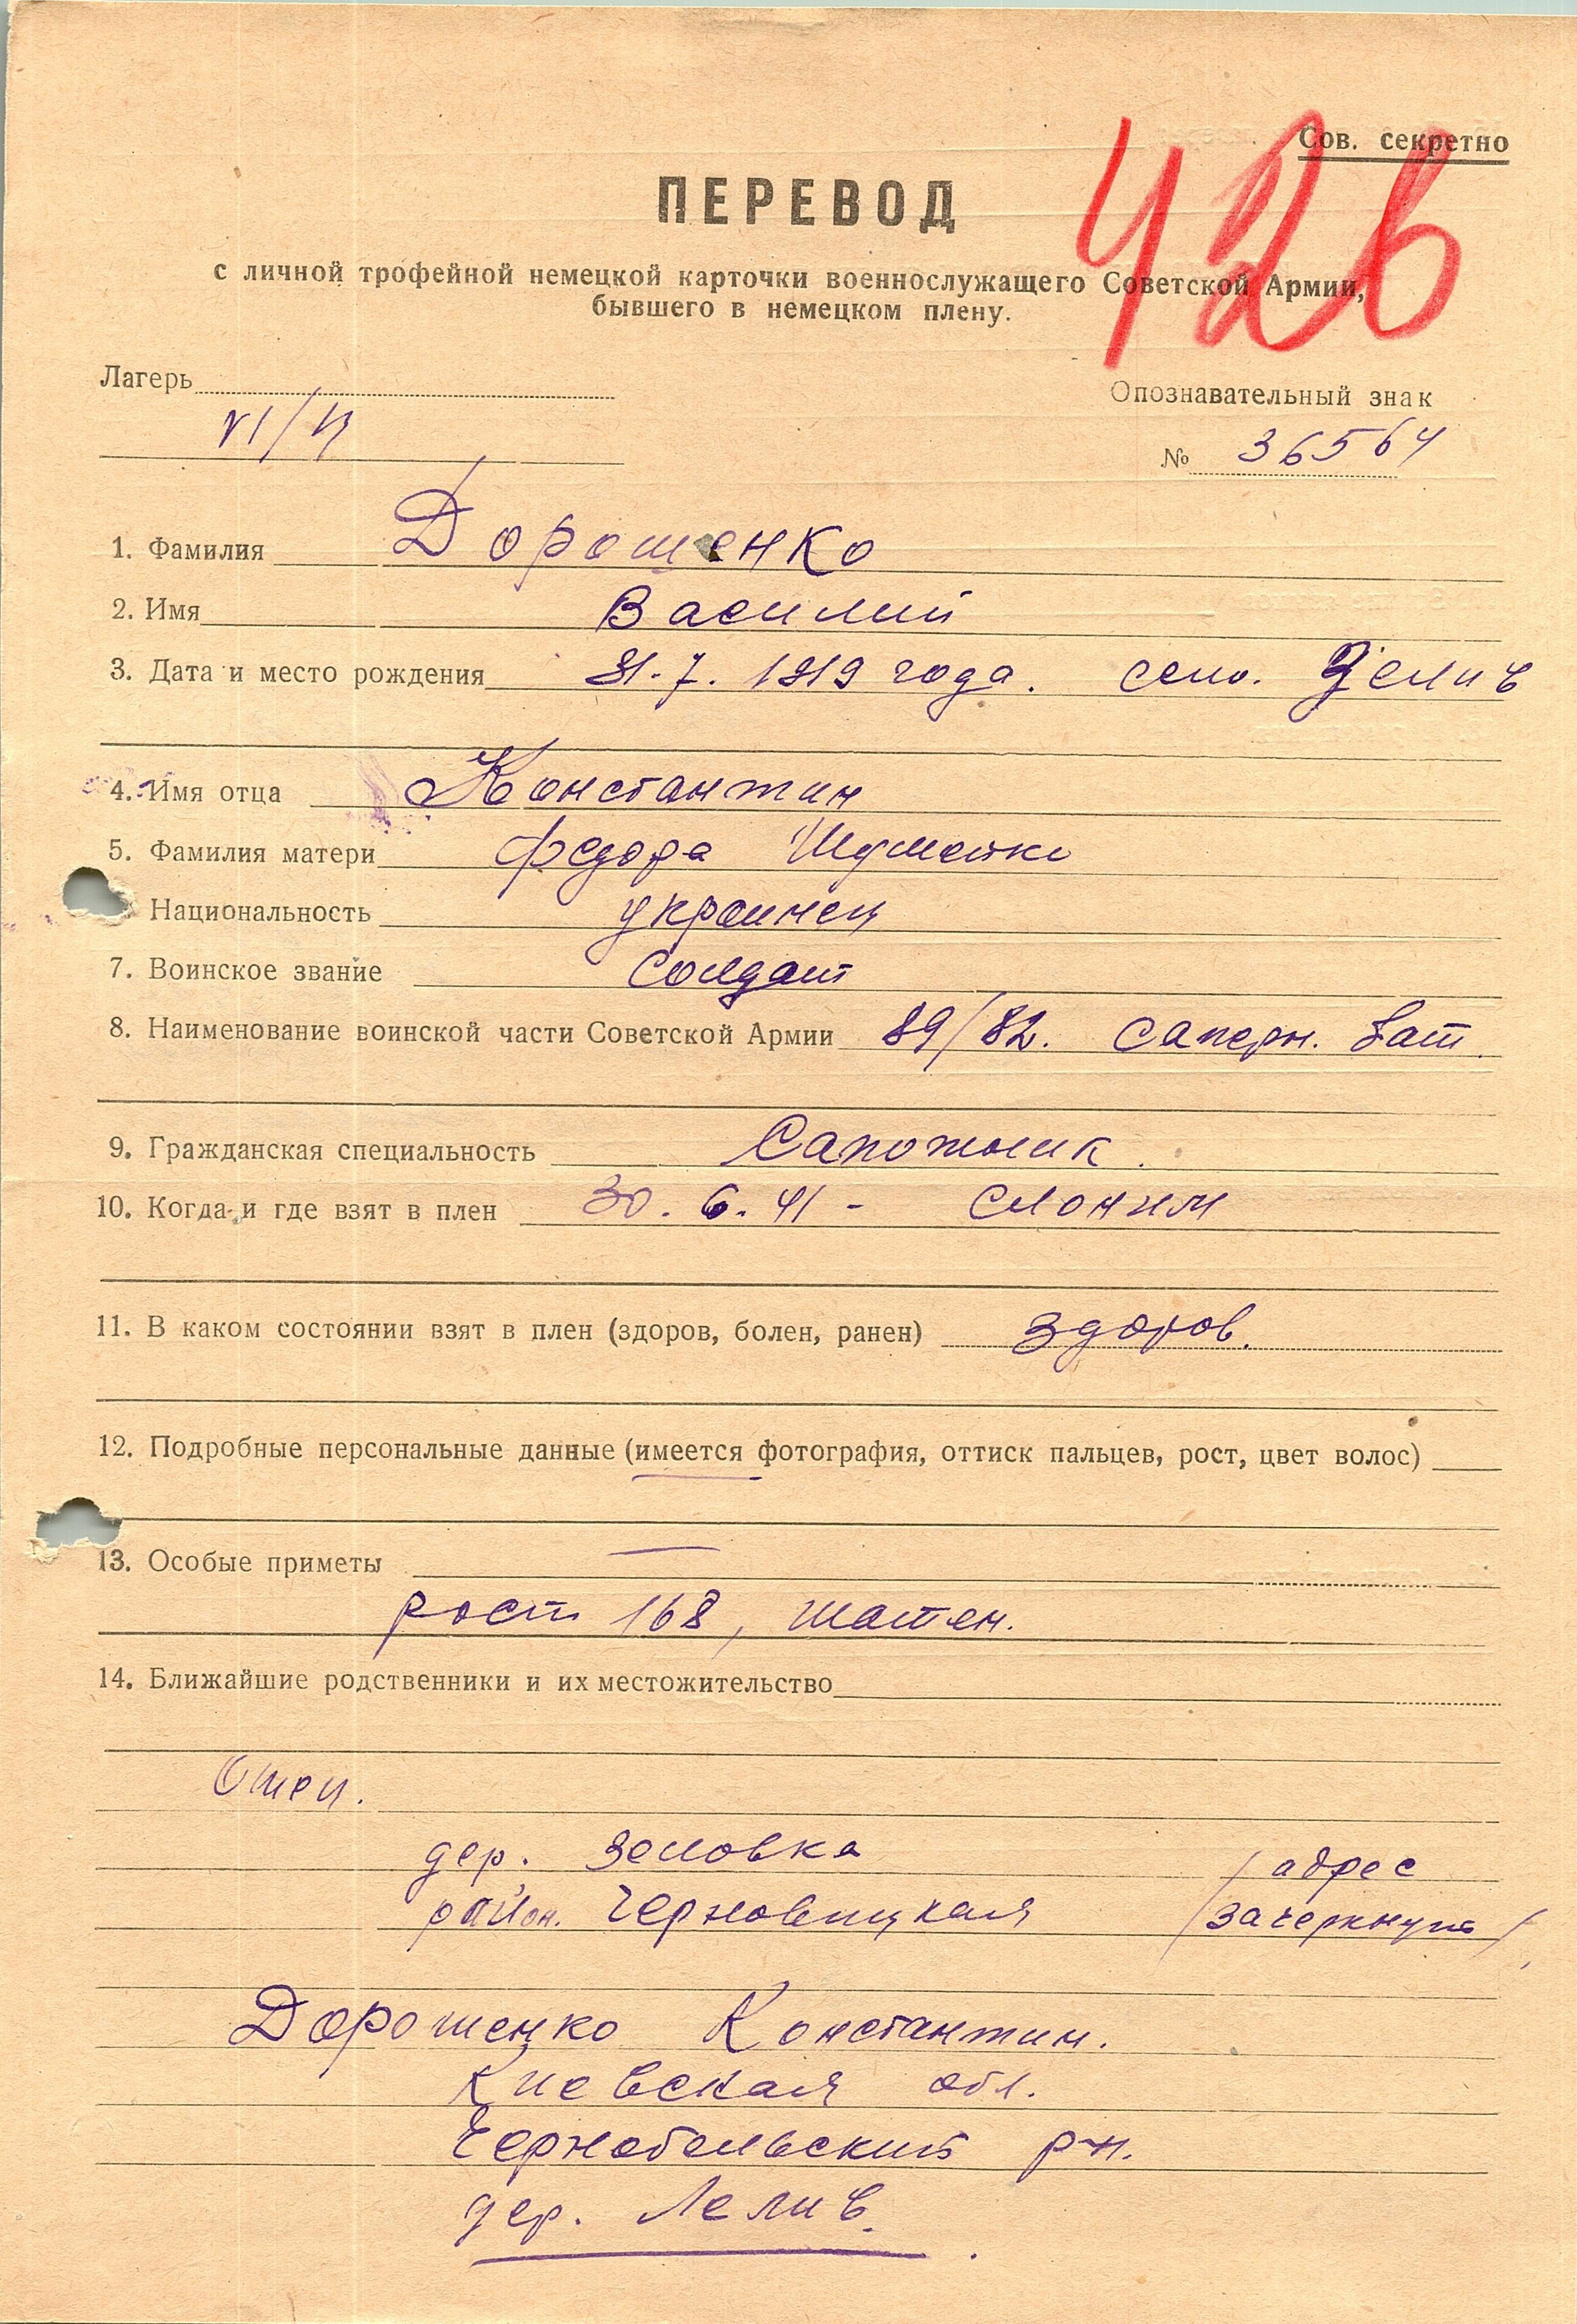 Сов. секретно
426
ПЕРЕВОД
с личной трофейной немецкой карточки военнослужащего Советской Армии,
бывшего в немецком плену.
Лагерь
Опознавательный знак
VI/
№ 36564
1. Фамилия Дорошенко
2. Имя Василий
3. Дата и место рождения 31.7. 1919 года. село.
4. Имя отца Константин
5. Фамилия матери Федора Шуметко
Национальность украинец
7. Воинское звание Солдат
8. Наименование воинской части Советской Армии 89/82. саперн. бат.
9. Гражданская специальность Сапожник.
10. Когда и где взят в плен 30. 6. 41 - Слоним
11. В каком состоянии взят в плен (здоров, болен, ранен) здоров.
12. Подробные персональные данные (имеется фотография, оттиск пальцев, рост, цвет волос)
13. Особые приметы —
рост 168, шатен.
14. Ближайшие родственники и их местожительство
Отец.
дер. Зеловка / адрес
район. Черновицкая / зачеркнут /
Дорошенко Константин.
Киевская обл.
Чернобельский р-н.
дер. Лелив.